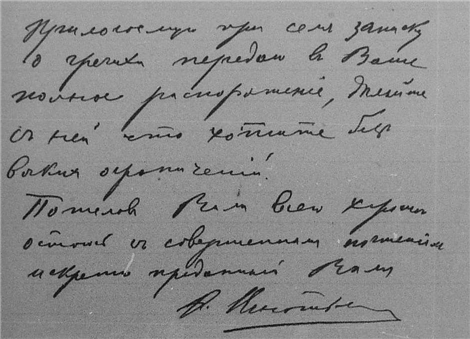 Прилогоемую при семъ записку
о гречихѣ передаю въ Ваше
полное распоряженіе, дѣлайте
съ ней что хотите безъ
всякихъ ограниченій.
Пожелавъ Вамъ всего хорошаго
остаюсь съ совершеннымъ почтеніемъ
искрено преданный Вамъ